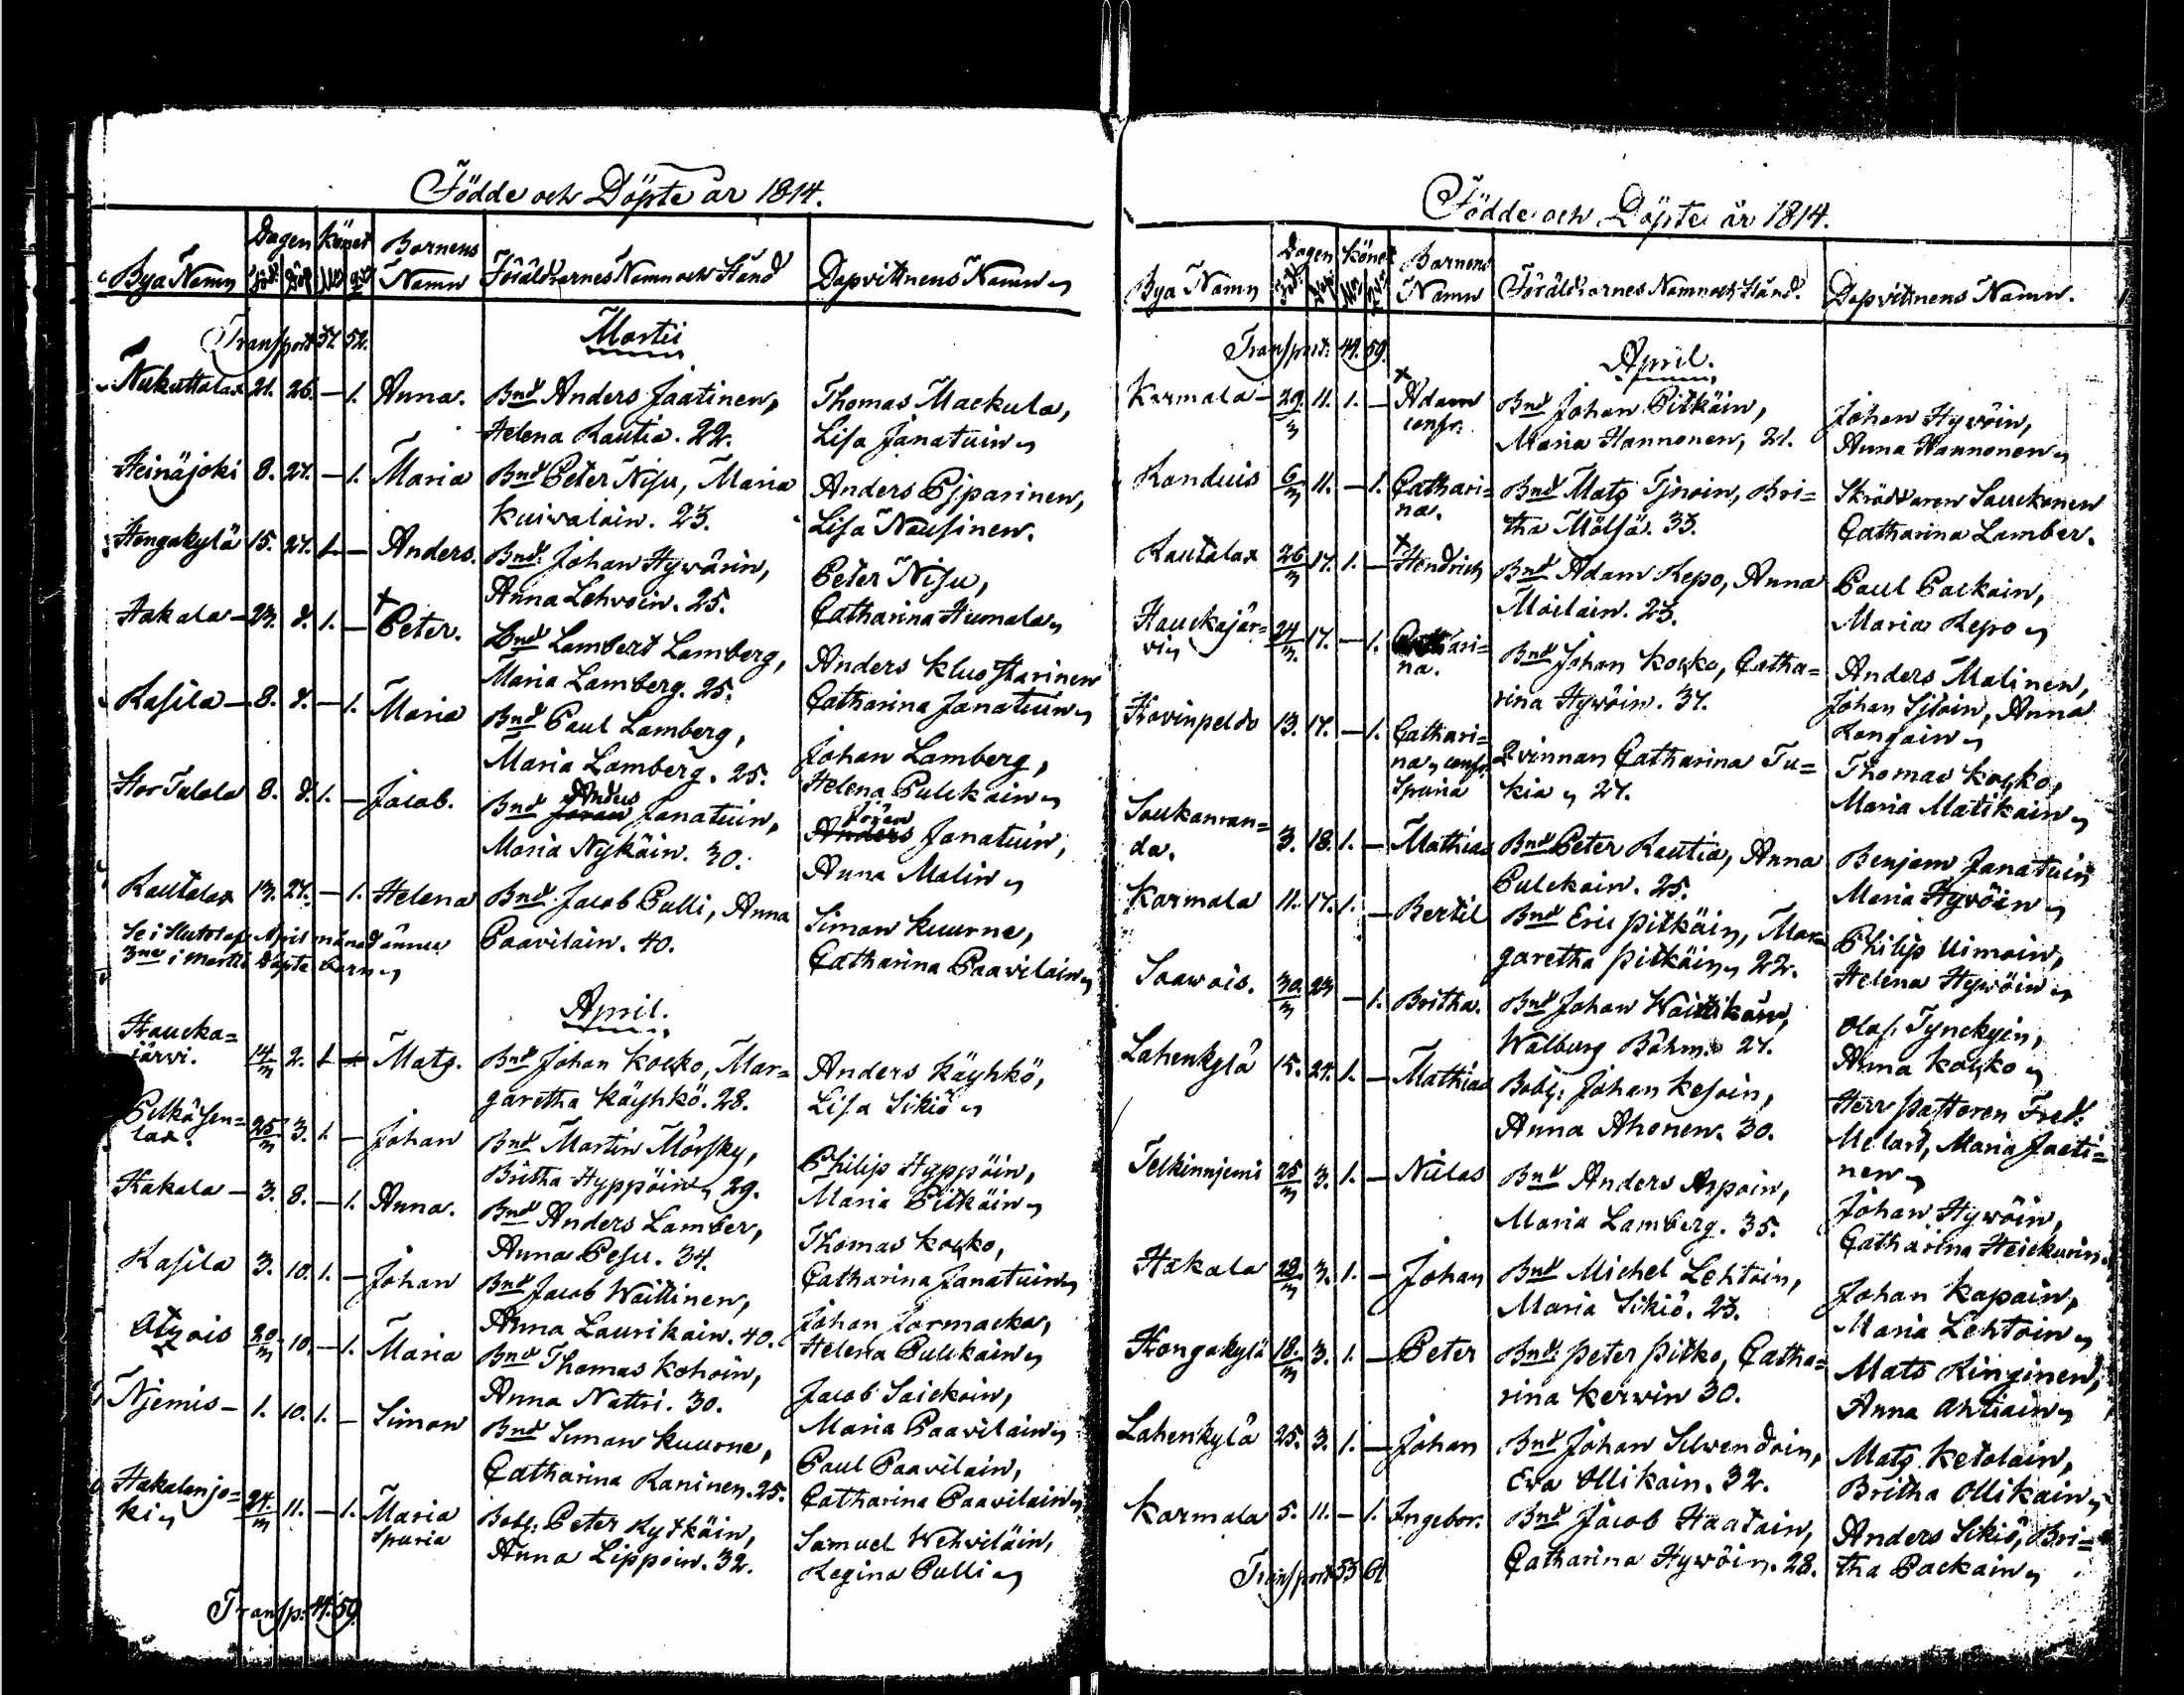 Födde och Döpte år 1814.
Bya Namn Dagen Född. Döp. Könet Barnens Namn Föräldrarnes Namn och Stånd Dopvittnens Namn
Transport 37. 52. Martii
Nukuttalax 21. 26. — 1. Anna. Bnd Anders Jaatinen, Thomas Mackula,
Helena Rautia. 22. Lisa Janatuin
Heinäjoki 8. 27. — 1. Maria Bnd Peter Nisu, Maria Anders Pjparinen,
Kuiwalain. 23. Lisa Nausinen.
Hongakylä 15. 27. 1. — Anders. Bnd. Johan Hyvärin, Peter Nisu,
Anna Lehvoin. 25. Catharina Humala
Hakala — 23. d. 1. — Peter. Bnd Lambert Lamberg, Anders Klus Starinen
Maria Lamberg. 25. Catharina Janatuin
Rasila — 8. d. — 1. Maria Bnd Paul Lamberg, Johan Lamberg,
Maria Lamberg. 25. Helena Pulckain
Stor Talola 8. d. 1. — Jacob. Bnd Johan Anders Janatuin, Anders Johan Janatuin,
Maria Nykäin. 30. Anna Malin
Rautalax 13. 27. — 1. Helena Bnd. Jacob Pulli, Anna Simon Kuurne,
Paavilain. 40. Catharina Paavilain
Se i slutet af April månad ännu
3ne i Martii döpte barn
April.
Haucka=
järvi. 14/3 2. 1. — Mats. Bnd Johan Kocko, Mar= Anders Käyhkö,
garetha Käyhkö. 28. Lisa Sikiö
Pölkösen=
lax. 25/3 3. 1. — Johan Bnd Martin Mörsky, Philip Hyppöin,
Britha Hyppöin 29. Maria Pitkäin
Hakala — 3. 8. — 1. Anna. Bnd Anders Lamber, Thomas Kocko,
Anna Pesu. 34. Catharina Janatuin
Rasila 3. 10. 1. — Johan Bnd Jacob Waittinen, Johan Jormacka,
Anna Laurikain. 40. Helena Pulckain
Otzois 20/3 10. — 1. Maria Bnd Thomas Kohoin, Jacob Saickoin,
Anna Nattri. 30. Maria Paavilain
Njemis — 1. 10. 1. — Simon Bnd Simon Kuurne, Paul Paavilain,
Catharina Raninen. 25. Catharina Paavilain
Hakalanjo=
ki 24/3 11. — 1. Maria Spuria Bobg: Peter Rytkäin, Samuel Wehviläin,
Anna Lippoin. 32. Regina Pulli
Transp: 44. 59.
Födde och Döpte år 1814.
Bya Namn Dagen Född. Döp. Könet Barnens Namn Föräldrarnes Namn och Stånd. Dopvittnens Namn.
Transport: 44. 59. April.
Karmala — 29/3 11. 1. — Adam confr. Bnd Johan Pitkäin, Johan Hyvöin,
Maria Hannonen, 21. Anna Hannonen
Konduis 6/3 11. — 1. Cathari= Bnd Mats Tjnoin, Bri= Skräddaren Sauckonen
na. tha Mölsä. 33. Catharina Lamber.
Rautalax 26/3 17. 1. — Hendrich Bnd Adam Repo, Anna Paul Packain,
Moilain. 23. Maria Repo
Hauckajär=
vi 24/3 17. — 1. Cathari= Bnd Johan Kocko, Catha= Anders Malinen,
na. rina Hyvöin. 37. Johan Siloin, Anna
Rongain
Hovinpeldo 13. 17. — 1. Cathari= Qvinnan Catharina Tu= Thomas Kocko,
na, confr. Spuria kia 27. Maria Matikain
Saukonran=
da. 3. 18. 1. — Mathias Bnd Peter Rautia, Anna Benjam Janatuin
Pulckain. 25. Maria Hyvöin
Karmala 11. 17. 1. — Bertil Bnd Eric Pitkäin, Mar= Philip Uimoin,
garetha Pitkäin 22. Helena Hyvöin
Saavois. 30/3 23 — 1. Britha. Bnd Johan Waittikain, Olof Tynckyin,
Walburg Böhm. 27. Anna Kocko
Lahenkylä 15. 24. 1. — Mathias Bobg: Johan Kesoin, Herr Pastoren Fred.
Anna Ahonen. 30. Melart, Maria Jaati=
nen
Telkinnjemi 25/3 3. 1. — Nielas Bnd Anders Arpoin, Johan Hyvöin,
Maria Lamberg. 35. Catharina Heickurin.
Hakala 28/3 3. 1. — Johan Bnd Michel Lehtoin, Johan Kapain,
Maria Sikiö. 23. Maria Lehtoin
Hongakylä 18/3 3. 1. — Peter Bnd: Peter Pitko, Catha= Mats Ringinen,
rina Kerwin 30. Anna Ahtiain
Lahenkylä 25. 3. 1. — Johan Bnd Johan Silvendoin, Mats Ketolain,
Eva Ollikain. 32. Britha Ollikain
Karmala 5. 11. — 1. Ingebor. Bnd Jacob Haatain, Anders Sikiö, Bri=
Catharina Hyvöin. 28. tha Packain
Transport 53 64